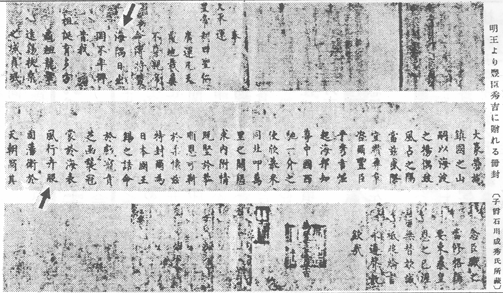 明王より豐臣秀吉に贈れる册封
(子爵石川成秀氏所藏)
奉
天承運
皇帝制曰聖仁
廣運凡天
覆地載莫
不尊親帝
命溥將暨
海隅日出
罔不率俾
昔我皇
祖誕育多方
龜紐龍章
遠錫扶桑
之域貞珉
大篆榮施
鎮國之山
嗣以海波
之揚偶致
風占之隔
當茲盛際
宜纘彝章
咨爾豐臣
平秀吉崛
起海邦知
尊中國西
馳一介之
使欣慕來
同北叩萬
里之關懇
求內附情
既堅於恭
順恩可靳
於柔懷茲
特封爾爲
日本國王
錫之誥命
於戲龍賁
芝函襲冠
裳於海表
風行卉服
固藩衛於
天朝爾其
念臣職之
當修恪循
要束感皇
恩之已渥
無替款誠
祗服綸言
永遵聲教
欽哉